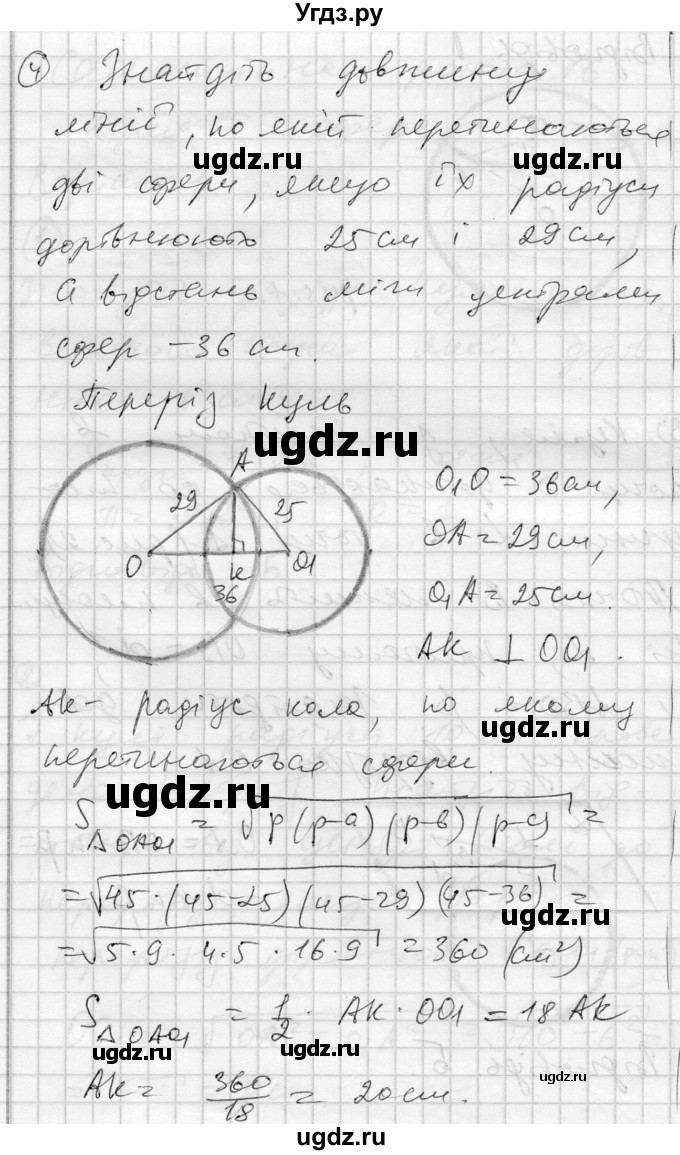 Угдз.ру
④ Знайдіть довжину
лінії, по якій перетинаються
ugdz.ru ugdz.ru
дві сфери, якщо їх радіуси
дорівнюють 25 см і 29 см,
ugdz.ru
а відстань між центрами
сфер – 36 см.
Переріз куль
ugdz.ru ugdz.ru
A
29 25
O K O1
36
O1O = 36 см,
OA = 29 см,
ugdz.ru
O1A = 25 см.
AK ⊥ OO1.
AK – радіус кола, по якому
ugdz.ru
перетинаються сфери.
ugdz.ru
S△OAO1 = √p(p-a)(p-b)(p-c) =
= √45·(45-25)(45-29)(45-36) =
ugdz.ru ugdz.ru
= √5·9·4·5·16·9 = 360 (см²)
S△OAO1 = 1/2 · AK · OO1 = 18 AK
ugdz.ru
AK = 360/18 = 20 см.
ugdz.ru
ugdz.ru